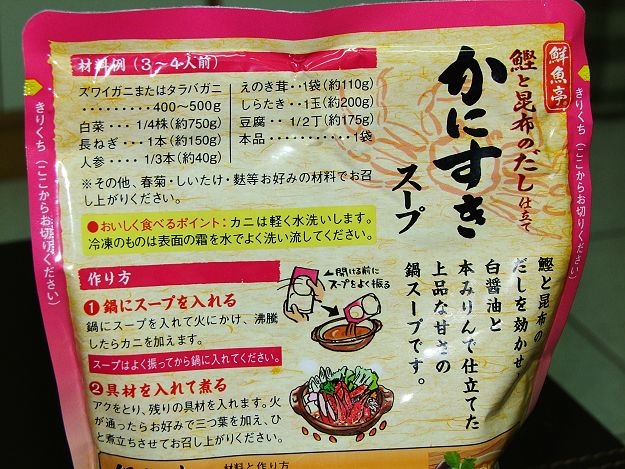 鮮魚亭
鰹と昆布のだし仕立て
かにすき
スープ
鰹と昆布の
だしを効かせ
白醤油と
本みりんで仕立てた
上品な甘さの
鍋スープです。
材料例（3〜4人前）
ズワイガニまたはタラバガニ
・・・・・・・・・400〜500g
白菜・・・1/4株(約750g)
長ねぎ・・・1本(約150g)
人参・・・1/3本(約40g)
えのき茸・・1袋(約110g)
しらたき・・1玉(約200g)
豆腐・・・1/2丁(約175g)
本品・・・・・・・・・1袋
※その他、春菊・しいたけ・麩等お好みの材料でお召
し上がりください。
●おいしく食べるポイント：カニは軽く水洗いします。
冷凍のものは表面の霜を水でよく洗い流してください。
作り方
①鍋にスープを入れる
鍋にスープを入れて火にかけ、沸騰
したらカニを加えます。
スープはよく振ってから鍋に入れてください。
開ける前に
スープをよく振る
②具材を入れて煮る
アクをとり、残りの具材を入れます。火
が通ったらお好みで三つ葉を加え、ひ
と煮立ちさせてお召し上がりください。
材料と作り方
きりくち（ここからお切りください）
きりくち（ここからお切りください）